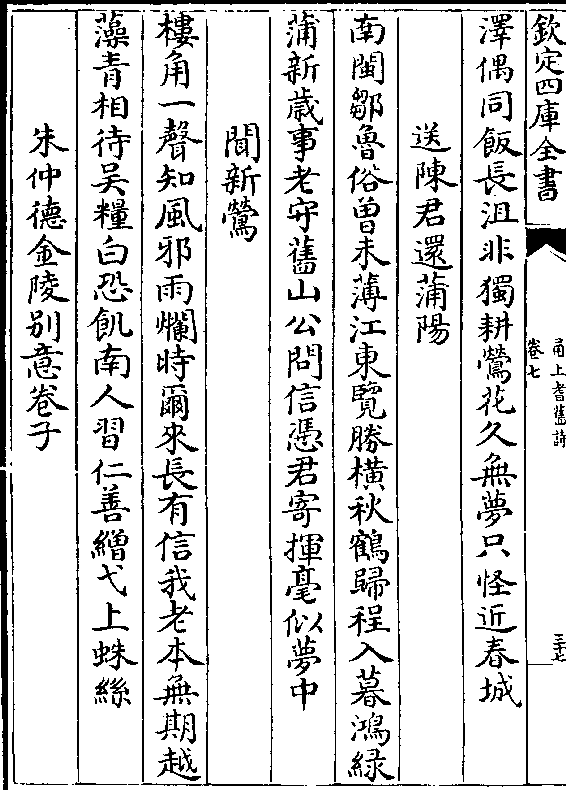 欽定四庫全書
甬上耆舊詩
卷七
三十七
澤偶同飯長沮非獨耕鶯花久無夢只怪近春城
送陳君還蒲陽
南閩鄒魯俗曽未薄江東覽勝横秋鶴歸程入暮鴻緑
蒲新歳事老守舊山公問信憑君寄揮毫似夢中
聞新鶯
樓角一聲知風邪雨爛時爾來長有信我老本無期越
藻青相待吴糧白恐飢南人習仁善繒弋上蛛絲
朱仲德金陵别意卷子